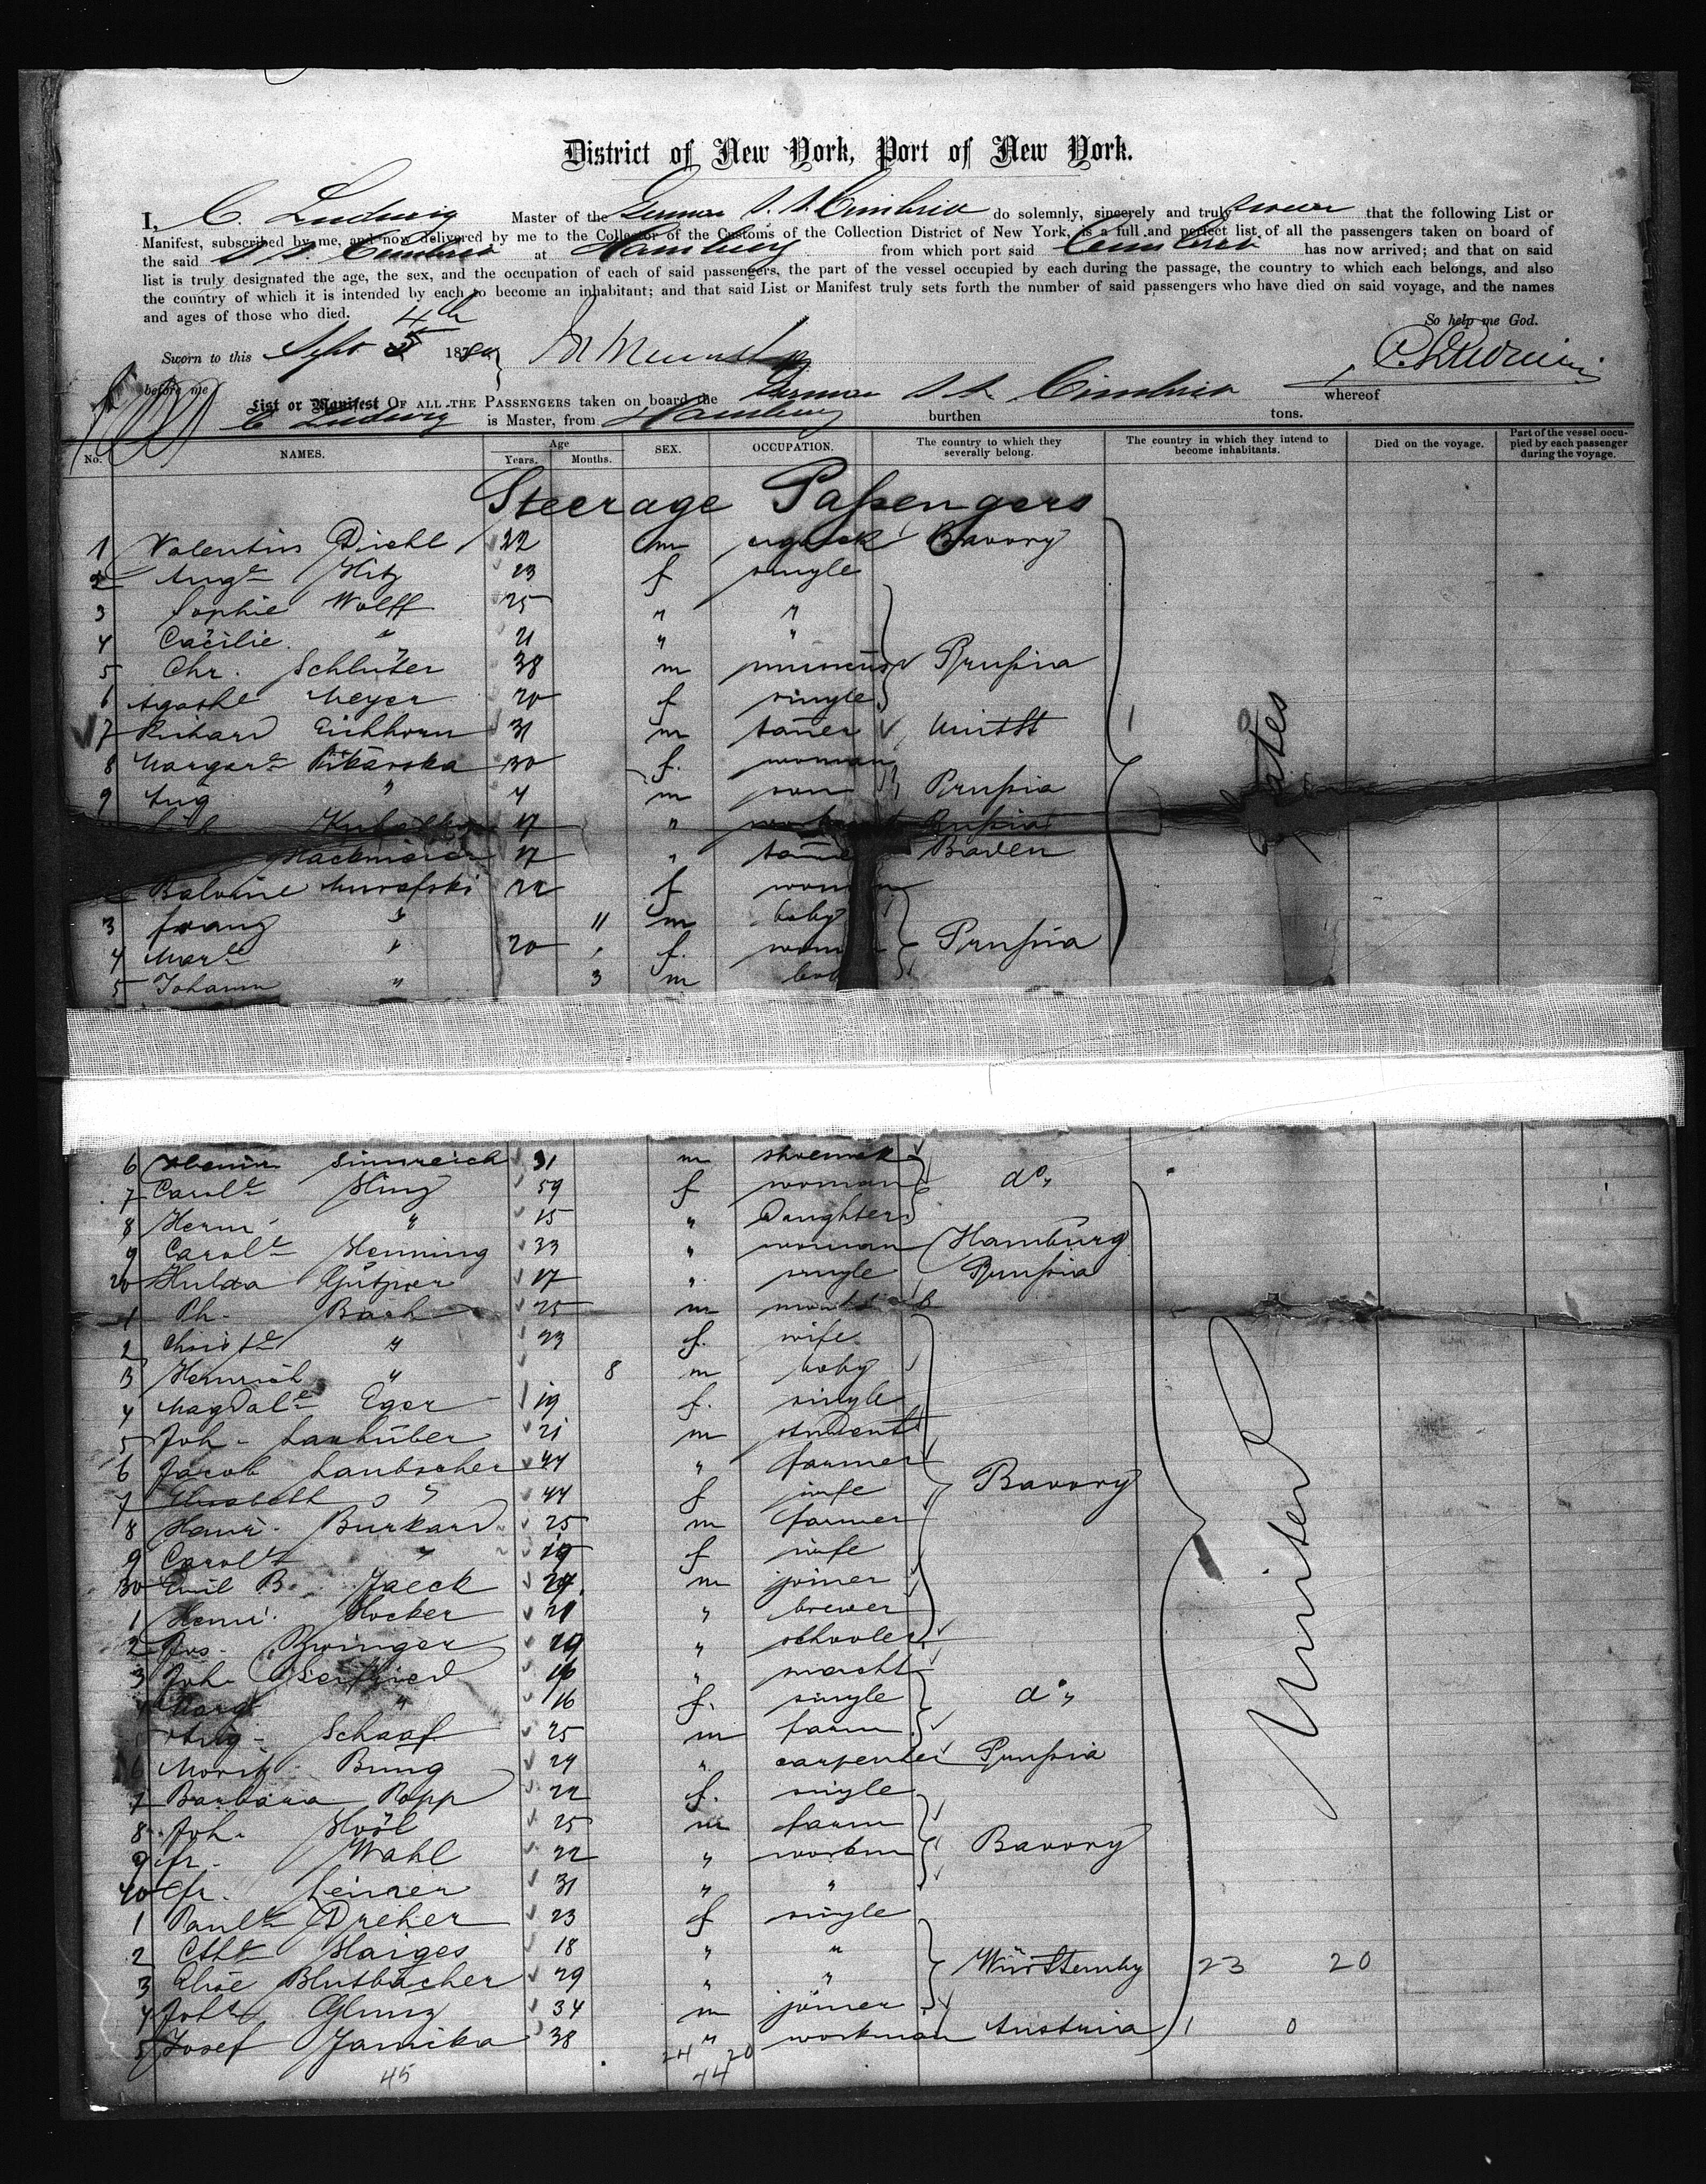 District of New York, Port of New York.
I, C. Ludwig Master of the German S. S. Cimbria do solemnly, sincerely and truly swear that the following List or
Manifest, subscribed by me, and now delivered by me to the Collector of the Customs of the Collection District of New York, is a full and perfect list of all the passengers taken on board of
the said S. S. Cimbria at Hamburg from which port said Cimbria has now arrived; and that on said
list is truly designated the age, the sex, and the occupation of each of said passengers, the part of the vessel occupied by each during the passage, the country to which each belongs, and also
the country of which it is intended by each to become an inhabitant; and that said List or Manifest truly sets forth the number of said passengers who have died on said voyage, and the names
and ages of those who died.
So help me God.
4th
Sworn to this Sept 1880
before me
C. Ludwig
List or Manifest OF ALL THE PASSENGERS taken on board the German S. S. Cimbria whereof
C Ludwig is Master, from Hamburg burthen tons.
No. NAMES. Age Years. Months. SEX. OCCUPATION. The country to which they severally belong. The country in which they intend to become inhabitants. Died on the voyage. Part of the vessel occupied by each passenger during the voyage.
Steerage Passengers
1 Valentin Diehl 22 m Bavory
2 Augte Hitz 23 f single
3 Sophie Wolff 25 " "
4 Cäcilie " 21 " "
5 Chr. Schlüter 38 m Prussia
6 Agathe Meyer 20 f single
7 Richard Eichhorn 31 m tanner Unit St
8 Margarte 30 f. woman
9 Aug " 4 m son Prussia
17 " Russia
17 " Baden
22 f woman
3 Franz " 11 m baby
4 Marte " 20 f. woman Prussia
5 Johann " 3 m
6 Simmreich 31 m shoemak do
7 Carolte Hinz 59 f woman
8 Herm. " 15 " Daughter
9 Carolte Henning 33 " woman Hamburg
20 Hulda 17 " single Prussia
1 Ph. Bach 25 m
2 Christe " 23 f. wife
3 Heinrich " 8 m baby
4 Magdalte Eger 19 f. single
5 Joh. Lanhüber 21 m student
6 Jacob Laubscher 44 " farmer Bavory
7 Elisabeth " 44 f wife
8 Heinr. Burkard 25 m farmer
9 Carolte " 19 f wife
30 Emil B. Jaeck 24 m joiner
1 Heinr. Hocker 21 " brewer
2 Jos. Zwinger 19 "
3 Joh. Seifried 16 "
4 Margt " 16 f. single do
5 Aug. Schaaf 25 m farm
6 Moritz Bung 29 " carpenter Prussia
7 Barbara Popp 22 f. single
8 Joh. 25 m farm
9 Fr. Wahl 22 " workm Bavory
40 Fr. 31 " "
1 Paulte Dreher 23 f single
2 Haiges 18 " "
3 Elise Blutbacher 29 " " Württemby 23 20
4 Johs Glunz 34 m joiner
5 Josef Jamika 38 " workman Austria 1 0
United States
24 20
45 44